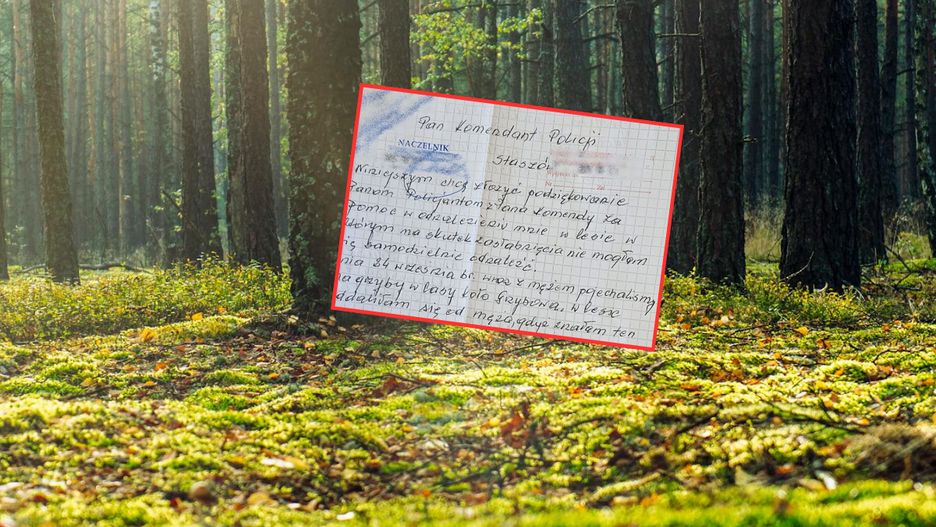 Pan Komendant Policji
NACZELNIK
Staszów
Niniejszym chcę złożyć podziękowanie
Panom Policjantom z Pana Komendy za
Pomoc w odnalezieniu mnie w lesie w
którym na skutek zasłabnięcia nie mogłam
się samodzielnie odnaleźć.
nia 24 września br. wraz z mężem pojechaliśmy
na grzyby w lasy koło Grzybowa, w lesie
oddaliłam się od męża, gdyż znałam ten